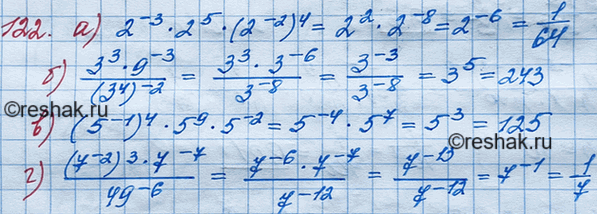 122. а) 2⁻³ · 2⁵ · (2⁻²)⁴ = 2² · 2⁻⁸ = 2⁻⁶ = 1/64
б) 3³ · 9⁻³ / (34)⁻² = 3³ · 3⁻⁶ / 3⁻⁸ = 3⁻³ / 3⁻⁸ = 3⁵ = 243
©reshak.ru
в) (5⁻¹)⁴ · 5⁹ · 5⁻² = 5⁻⁴ · 5⁷ = 5³ = 125
©reshak.ru
г) (7⁻²)3 · 7⁻⁷ / 49⁻⁶ = 7⁻⁶ · 7⁻⁷ / 7⁻¹² = 7⁻¹³ / 7⁻¹² = 7⁻¹ = 1/7